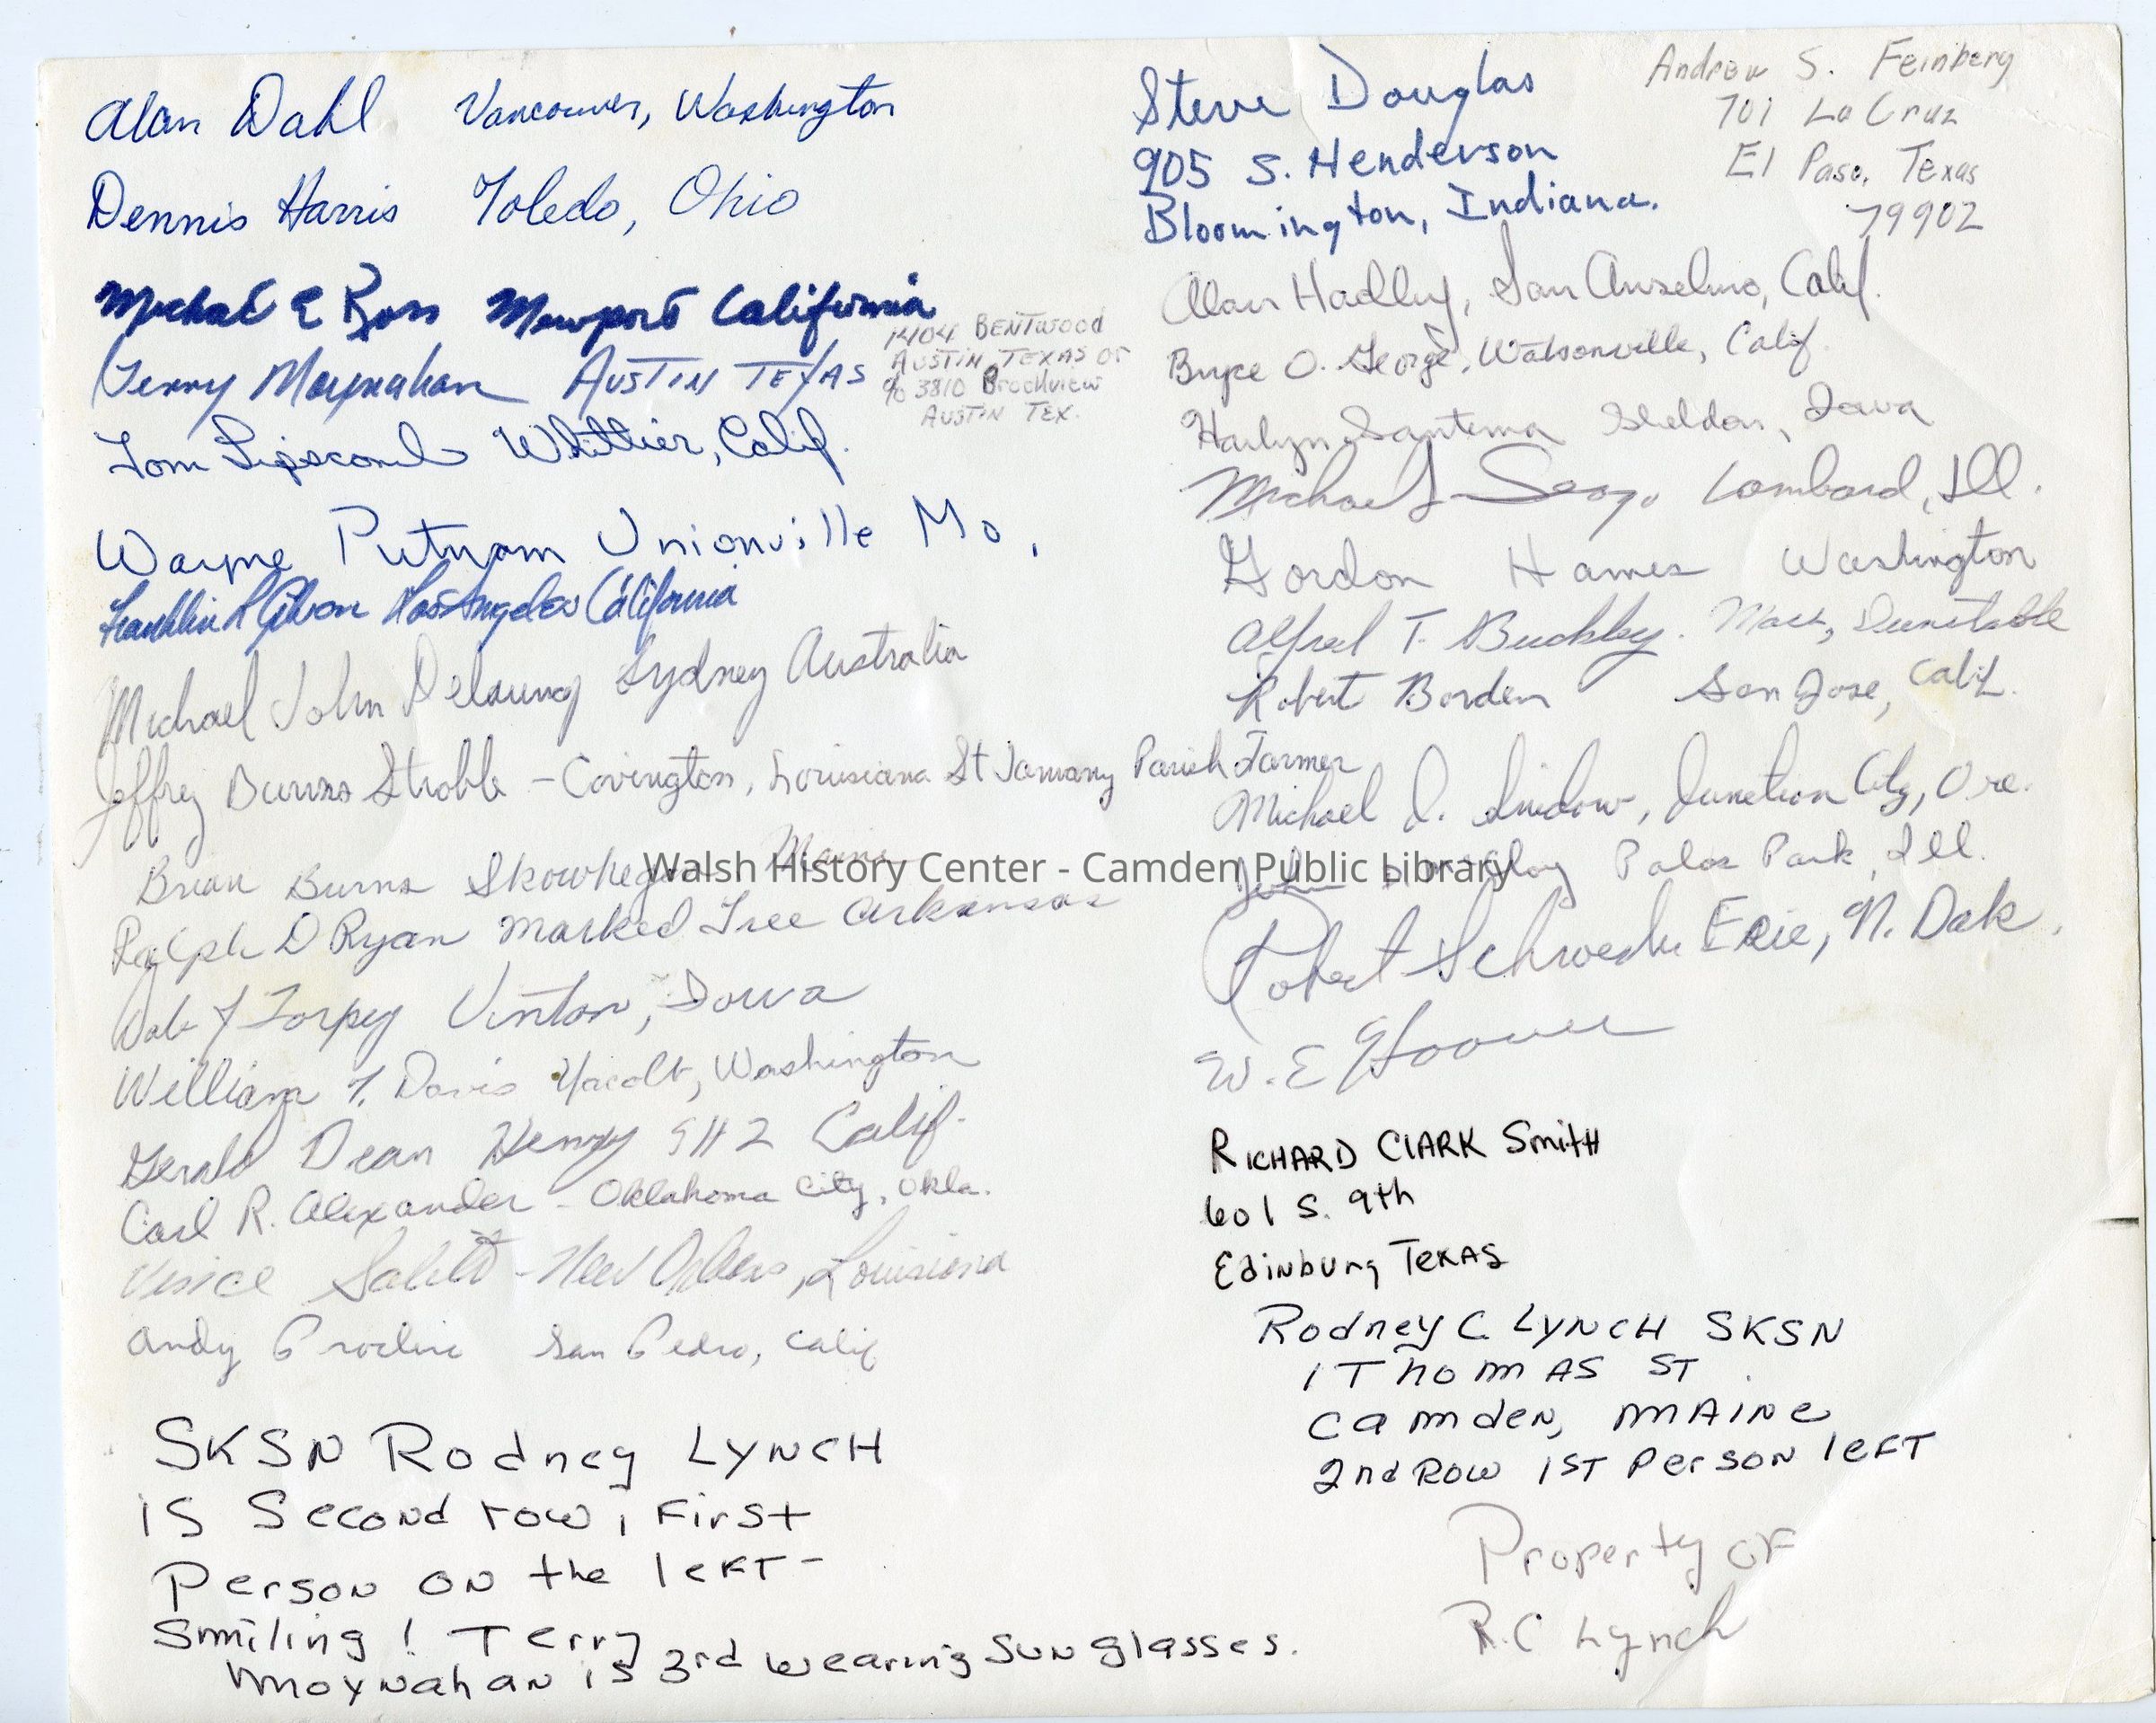 Alan Dahl Vancouver, Washington
Dennis Harris Toledo, Ohio
Michael E Ross Newport California
Terry Moynahan AUSTIN TEXAS
1404 BENTWOOD
AUSTIN, TEXAS or
% 3810 Brockview
AUSTIN TEX.
Tom Lipscomb Whittier, Calif.
Wayne Putnam Unionville Mo.
Franklin R Gibson Los Angeles California
Michael John Sydney Australia
Jeffrey Burns Strobble - Covington, Louisiana St Tammany Parish Farmer
Brian Burns Skowhegan Maine
Ralph D Ryan Marked Tree Arkansas
Dale J Torpey Vinton, Iowa
William T. Davis Yacolt, Washington
Gerald Dean Henry SH2 Calif.
Carl R. Alexander - Oklahoma City, Okla.
Vince - New Orleans, Louisiana
Andy San Pedro, Calif
SKSN Rodney LYNCH
is Second row, First
Person on the left -
Smiling! Terry
Moynahan is 3rd wearing sunglasses.
Steve Douglas
905 S. Henderson
Bloomington, Indiana.
Andrew S. Feinberg
701 La Cruz
El Paso, Texas
79902
Alan Hadley, San Anselmo, Calif.
Bryce O. George, Watsonville, Calif.
Harlyn Santema Sheldon, Iowa
Michael Lombard, Ill.
Gordon Hames Washington
Alfred T. Buckley. Mass, Dunstable
Robert Borden San Jose, Calif.
Michael D. Lindow, Junction City, Ore.
John Palos Park, Ill.
Robert Schroeder Erie, N. Dak.
W. E Hoover
RICHARD CLARK Smith
601 S. 9th
Edinburg Texas
Rodney C. LYNCH SKSN
1 Thomas ST
Camden, MAINE
2nd Row 1ST Person left
Property of
R.C Lynch
Walsh History Center - Camden Public Library